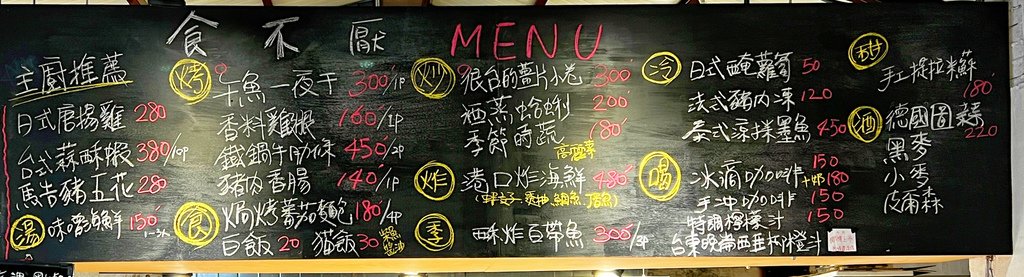 食不厭 MENU
主廚推薦
日式唐揚雞 280
台式蒜酥蝦 380/10P
馬告豬五花 280
湯
味噌海鮮 150
烤
一夜干 300/1P
香料雞腿 160/1P
鐵鍋牛肋條 450/2P
豬肉香腸 140/1P
食
焗烤蕃茄麵包 180/4P
白飯 20 貓飯 30
炒
很台的薑片小卷 300
酒蒸蛤蜊 200
季節時蔬 180
高麗菜
炸
港口炸海鮮 480
季
酥炸白帶魚 300/3P
冷
日式醃蘿蔔 50
法式豬肉凍 120
泰式涼拌墨魚 450
喝
冰滴咖啡 150
+奶 180
手沖咖啡 150
特調檸檬斗 150
甜
手工提拉米蘇 180
酒
德國圖赫 220
黑麥
小麥
皮爾森